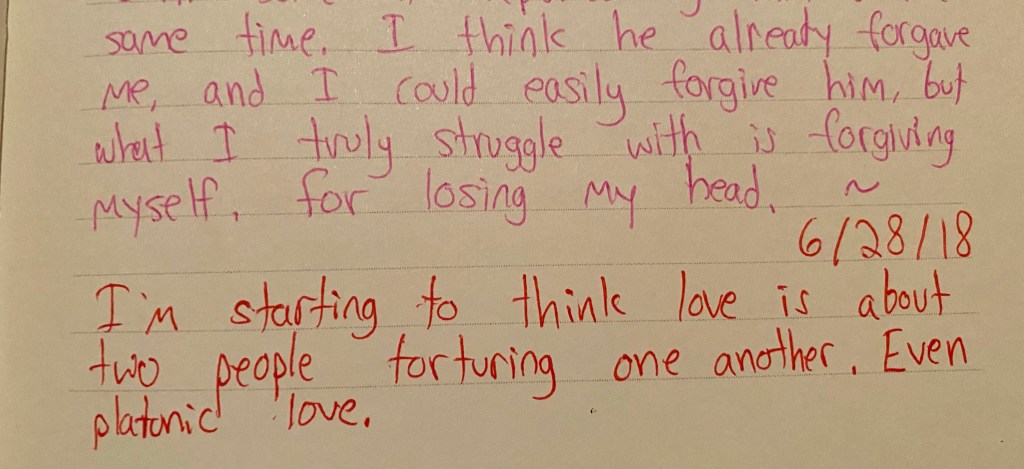 same time. I think he already forgave
me, and I could easily forgive him, but
what I truly struggle with is forgiving
myself. for losing my head. ~
6/28/18
I'm starting to think love is about
two people torturing one another. Even
platonic love.